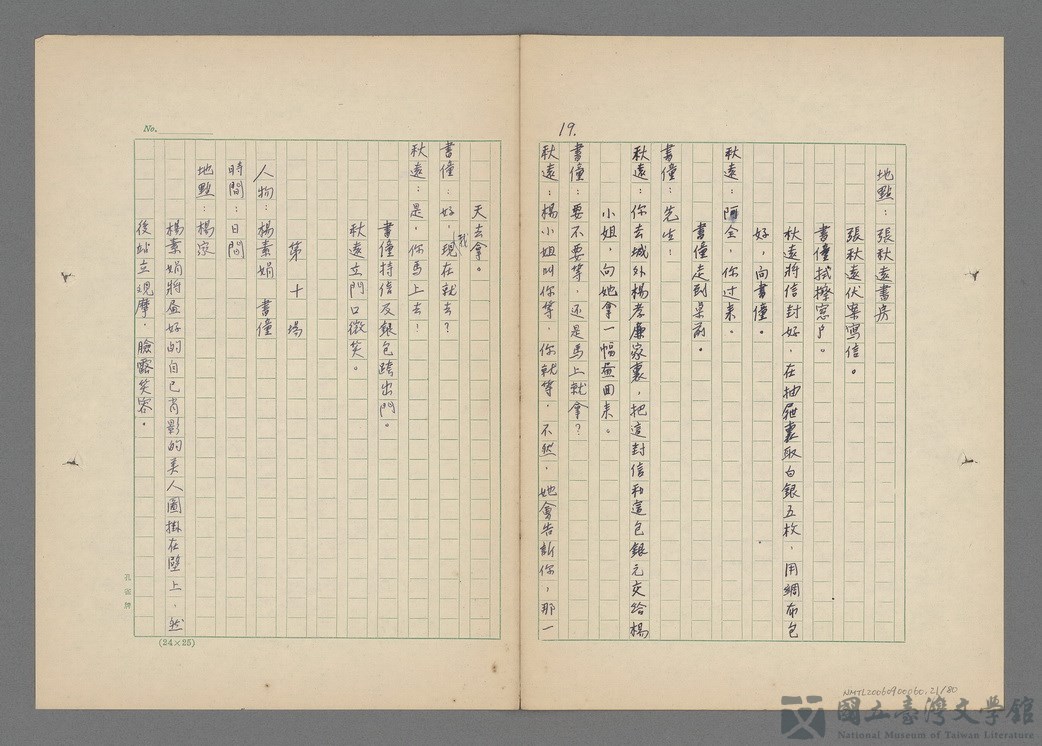 19.
地點：張秋遠書房
張秋遠伏案寫信。
書僮拭擦窓戶。
秋遠將信封好，在抽屜裏取白銀五枚，用綢布包
好，向書僮。
秋遠：阿全，你過来。
書僮走到桌前。
書僮：先生：
秋遠：你去城外楊孝廉家裏，把這封信和這包銀元交給楊
小姐，向她拿一幅畫回来。
書僮：要不要等，还是馬上就拿？
秋遠：楊小姐叫你等，你就等，不然，她會告訴你，那一
No.
天去拿。
書僮：好，我現在就去？
秋遠：是，你馬上去！
書僮持信及銀包跨出門。
秋遠立門口微笑。
第十場
人物：楊素娟　書僮
時間：日間
地點：楊家
楊素娟將畫好的自己肖影的美人圖掛在壁上，然
後站立観摩，臉露笑容。
孔雀牌
(24×25)
NMTL20060900060.21/80
國立臺灣文學館
National Museum of Taiwan Literature